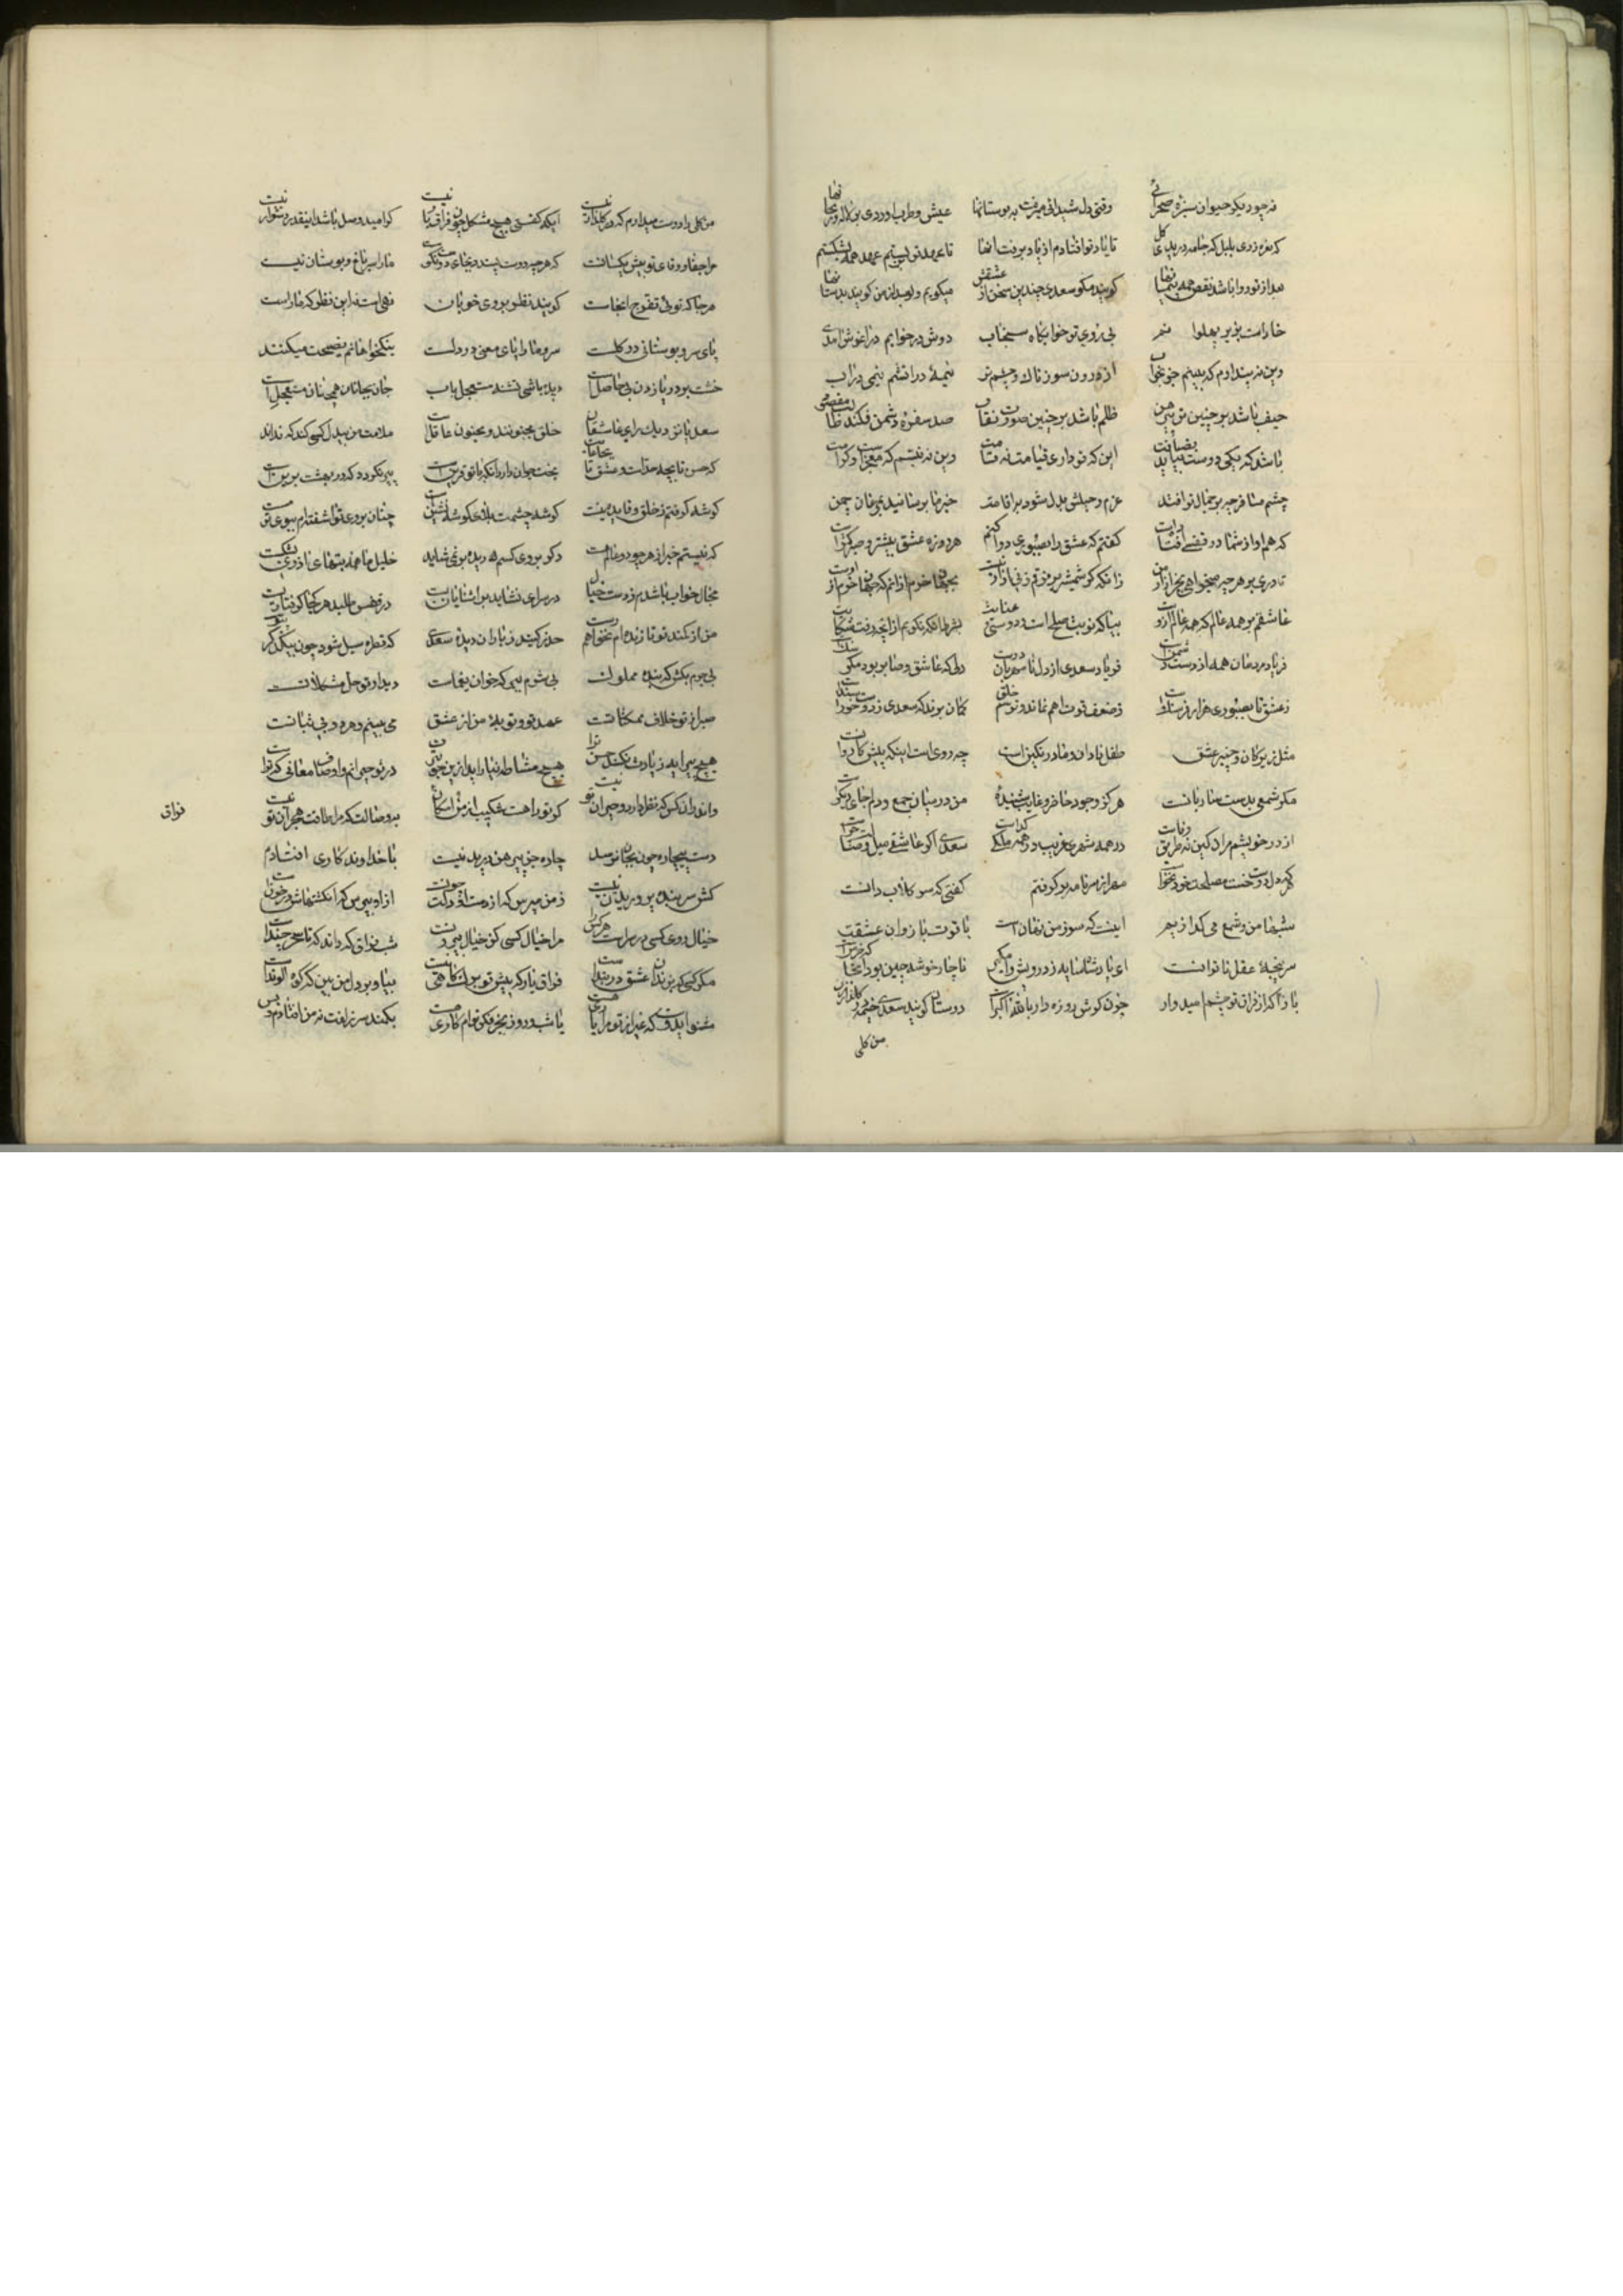 نه چو دیگر حیوان سبزه صحرائی وقتی دل شیدائی میرفت به بوستانها عیش و طرب اوردی بر لاله و ریحانها
که نعره زدی بلبل که جامه دریدی گل تا یاد تو افتادم از یاد برفت انها تا عهد تو بستم عهد همه بشکستم
بعد از تو روا باشد نقض همه پیمانها گویند مگو سعدی چندین سخن از عشقش میگویم و بعد از من گویند بدستانها
خاراست بزیر پهلوا نم بی روی تو خوابگاه سنجاب دوش در خوابم در اغوش امدی
وین نه پندارم که بینم جز بخواب از درون سوزناک و چشم تر نیمهٔ در اتشم نیمی در اب
حیف باشد بر چنین تن پیرهن ظلم باشد بر چنین صورت نقاب صد سفره دشمن فکند طالب مقصود
باشد که یکی دوست بیاید بضیافت این که تو داری قیامتست نه قامت وین نه تبسم که معجزست و کرامت
چشم مسافر چو بر جمال تو افتد عزم رحیلش بدل شود باقامت خبر ما برسانید بمرغان چمن
که هم اواز شما در قفسی افتادست گفتم که عشق را بصبوری دوا کنم هر روزه عشق بیشتر و صبر کمترست
تا دری بر هر چه میخواهی بجز ازار من زانکه گر شمشیر بر فرقم زنی ازار نیست بجهان خرم از انم که جهان خرم از اوست
عاشقم بر همه عالم که همه عالم ازوست بیا که نوبت صلح است و دوستی و عنایت بشرط انکه نگویم از انچه رفت شکایت
فریاد مردمان همه از دست دشمنست فریاد سعدی از دل نامهربان دوست دلی که عاشق و صابر بود مگر سنگست
ز عشق تا بصبوری هزار فرسنگست ز ضعف قوت اهم نماند و ترسم خلق گمان برند که سعدی ز دوست خرسند است
مثل زیرکان و چنبر عشق طفل نادان و مار رنگین است چه روی است اینکه پیش کاروانست
مگر شمعی بدست ساربانست هرگز وجود حاضر و غایب شنیدهٔ من در میان جمع و دلم جای دیگرست
از در خویشم مران کین نه طریق وفاست در همه شهری غریب در همه ملکی گداست سعدی اگر عاشقی میل وصالت چراست
هر که دل دوست جست مصلحت خود نخواست مهر از سر نامه بر گرفتم گفتی که سر گلاب دانست
شبها من و شمع می گدازیم اینست که سوز من نهان است با قوت بازوان عشقت
سر پنجهٔ عقل ناتوانست ای پادشاه سایه ز درویش وا مگیر ناچار خوشه چین بود انجا که خرمنست
باز ا که از فراق تو چشم امیدوار چون گوش روزه دار بالله اکبرست دوستان گویند سعدی خیمه بر گلزار زن
من گلی
من گلی را دوست میدارم که در گلزار نیست ایکه گفتی هیچ مشکل چون فراق یار نیست گر امید وصل باشد اینقدر دشوار نیست
مرا جفا و وفای تو پیش یکسانست که هر چه دوست پسندد بجای دوست نکوست ما را سر باغ و بوستان نیست
هر جا که توئی تفرج انجاست گویند نظر بروی خوبان نهی است نه این نظر که ما راست
پای سرو بوستانی در گلست سرو ما را پای معنی در دلست نیکخواهانم نصیحت میکنند
خشت بر دریا زدن بی حاصل است دیده باشی تشنه مستعجل باب جان بجانان همچنان مستعجل است
سعدیا نزدیک رای عاشقان خلق مجنونند و مجنون عاقل است ملامت من بیدل کسی کند که نداند
که حسن تا بچه حدست و عشق تا بچه غایت بخت جوان دارد انکه با تو قرین است پیر نگردد که در بهشت برین است
گوشه گرفتم ز خلق و فایده نیست گوشه چشمت بلای گوشه نشین است چنان بروی تو اشفته ام ببوی تو مست
که نیستم خبر از هر چه در دو عالم هست دگر بروی کسم دیده بر نمی شاید خلیل ما همه بتهای اذری بشکست
مجال خواب نباشدم ز دست خیال در سرای نشاید بر اشنایان بست در قفس طلبد هر کجا گرفتاریست
من از کمند تو تا زنده ام نخواهم رست حذر کنید ز باران دیده سعدی که قطره سیل شود چون بیکدگر پیوست
بی جرم بکش که بنده مملوک بی شرم ببر که خوان یغماست دیدار تو حل مشکلانست
صبر از تو خلاف ممکناتست عهد تو و توبهٔ من از عشق می بینم و هر دو بی ثباتست
هیچ پیرایه زیادت نکند حسن ترا هیچ مشاطه نیاراید ازین خوبترت در تو حیرانم و اوصاف معانی که تراست
و اندران کس که نظر دارد و حیران تو نیست گر تو را هست شکیب از من امکان فراق بوصالت که مرا طاقت هجران تو نیست
دست بیچاره چون بجان نرسد چاره جز پیرهن دریدن نیست با خداوندگاری افتادم
کش سر بنده پروریدن نیست ز من مپرس که از دست او دلت چونست از او بپرس که انگشتهاش در خونست
خیال روی کسی در سراست هر کس را مرا خیال کسی کز خیال بیرونست شب فراق که داند که تا سحر چندست
مگر کسی که بزندان عشق در بندست فراق یار که پیش تو برگ کاهی نیست بیا و بر دل من بین که کوه الوندست
مشنو ایدوست که غیر از تو مرا یاری هست یا شب و روز بجز فکر توام کاری هست بکمند سر زلفت نه من افتادم و بس
فراق